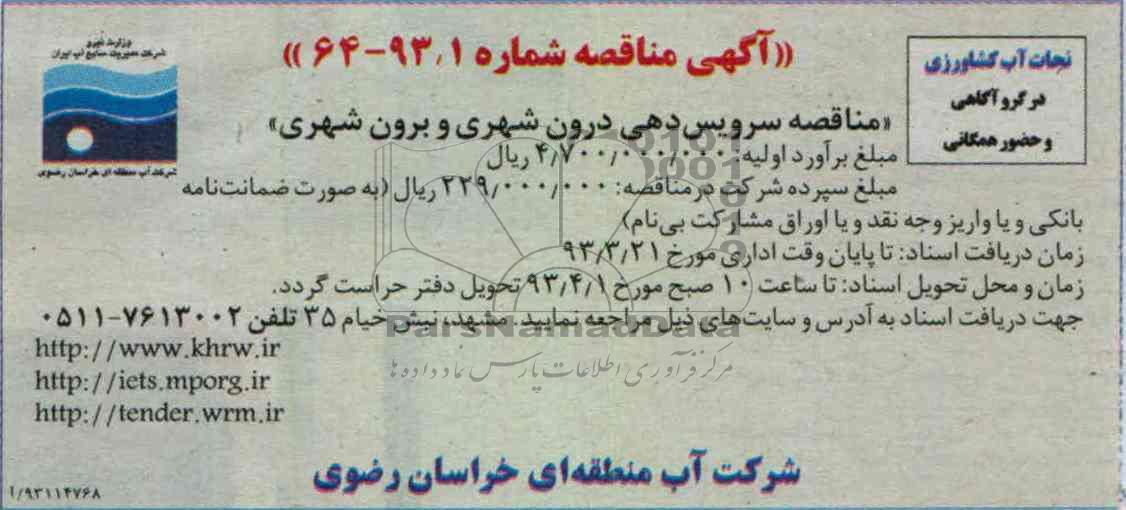 وزارت نیرو
شرکت مدیریت منابع آب ایران
شرکت آب منطقه ای خراسان رضوی
نجات آب کشاورزی
در گرو آگاهی
و حضور همگانی
«آگهی مناقصه شماره ۹۳،۱-۶۴»
«مناقصه سرویس‌دهی درون شهری و برون شهری»
مبلغ برآورد اولیه: ۴٫۷۰۰٫۰۰۰٫۰۰۰ ریال
مبلغ سپرده شرکت در مناقصه: ۲۲۹٫۰۰۰٫۰۰۰ ریال (به صورت ضمانت‌نامه
بانکی و یا واریز وجه نقد و یا اوراق مشارکت بی‌نام)
زمان دریافت اسناد: تا پایان وقت اداری مورخ ۹۳٫۳٫۲۱
زمان و محل تحویل اسناد: تا ساعت ۱۰ صبح مورخ ۹۳٫۴٫۱ تحویل دفتر حراست گردد.
جهت دریافت اسناد به آدرس و سایت‌های ذیل مراجعه نمایید. مشهد، نبش خیام ۳۵ تلفن ۷۶۱۳۰۰۲-۰۵۱۱
http://www.khrw.ir
http://iets.mporg.ir
http://tender.wrm.ir
ParsNamadData
مرکز فرآوری اطلاعات پارس نماد داده ها
شرکت آب منطقه‌ای خراسان رضوی
۹۳۱۱۴۷۶۸/آ